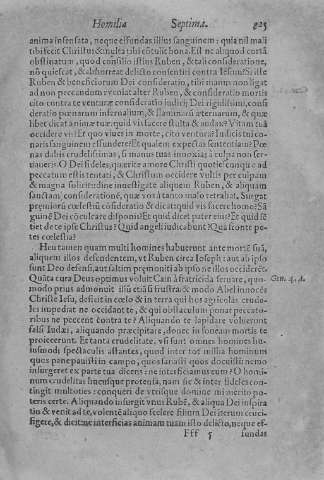 Homilia Septima. 925
anima insensata, neque effundas illius sanguinem: quia nil mali
tibi fecit Christus & multa tibi cōtulit bona. Est ne aliquod cordis
obstinatum, quod consilio istius Ruben, & tali consideratione,
nō quiescat, & abhorreat delicto consentiri contra Iesum? Si iste
Ruben & beneficiorum Dei consideratio, tibi manus non ligat
ad non peccandum: veniat alter Ruben, & consideratio mortis
cito contra te venturæ consideratio iudicij Dei rigidissimi, consi
deratio pœnarum infernalium, & flammarū æternarum, & quæ
libet dicat animæ tuæ: quid vis facere stulta & audax? Vitam tuā
occidere vis? Et quo viues in morte, cito ventura? Iudicis tui co-
naris sanguinem effundere? Et qualem expectas sententiam? Pœ
nas dabis crudelissimas, si manus tuas innoxias à culpa non ser-
uaueris. O Dei fideles, quærite amore Christi quotiescunque ad
peccatum estis tentati, & Christum occidere vultis per culpam
& magna solicitudine inuestigate aliquem Ruben, & aliquam
sanctam considerationē, quæ vos à tanto malo retrahat. Surget
premiorū cœlestiū consideratio & dicat: quid vis facere homo? Sā
guinē Dei cōculcare disponis? Et quid dicet pater eius? Et quid sē
tiet de te ipse Christus? Quid angeli iudicabunt? Qua fronte pe-
tes cœlestia?
Heu tamen quam multi homines habuerunt ante mortē suā,
aliquem illos defendentem, vt Ruben circa Ioseph: aut ab ipso
sunt Deo defensi, aut saltim præmoniti ab ipso ne illos occiderēt.
Quāta cura Deus optimus voluit Cain à fratricidia seruare, quo-
modo prius admonuit illū: etiā si frustra & modo Abel innocēs
Christe Iesu, deficit in cœlo & in terra qui hos agricolas crude-
les impedāt ne occidant te, & qui obstaculum ponat peccato-
ribus ne peccent contra te? Aliquando te lapidare voluerunt
falsi Iudæi, aliquando præcipitare, donec in fœneam mortis te
proiecerunt. Et tanta crudelitate, vt si sunt omnes homines hu-
iusmodi spectaculis astantes, quod inter tot millia hominum
quos pane pauisti in campo, quos sanasti quos docuisti: nemo
insurgeret ex parte tua dicens: ne interficiamus eum? O homi-
num crudelitas hucusque protensa, nam sic & inter fideles con-
tingit multoties: conqueri de vtrisque domine mi merito po-
teris certe. Aliquando insurgit vnus Rubē, & aliqua Dei inspira
tio & venit ad te, volentē aliquo scelere filium Dei iterum cruci-
figere, & dicit: ne interficias animam tuam isto delicto, neque ef-
Gen. 4. A.
Fff 5 fundas